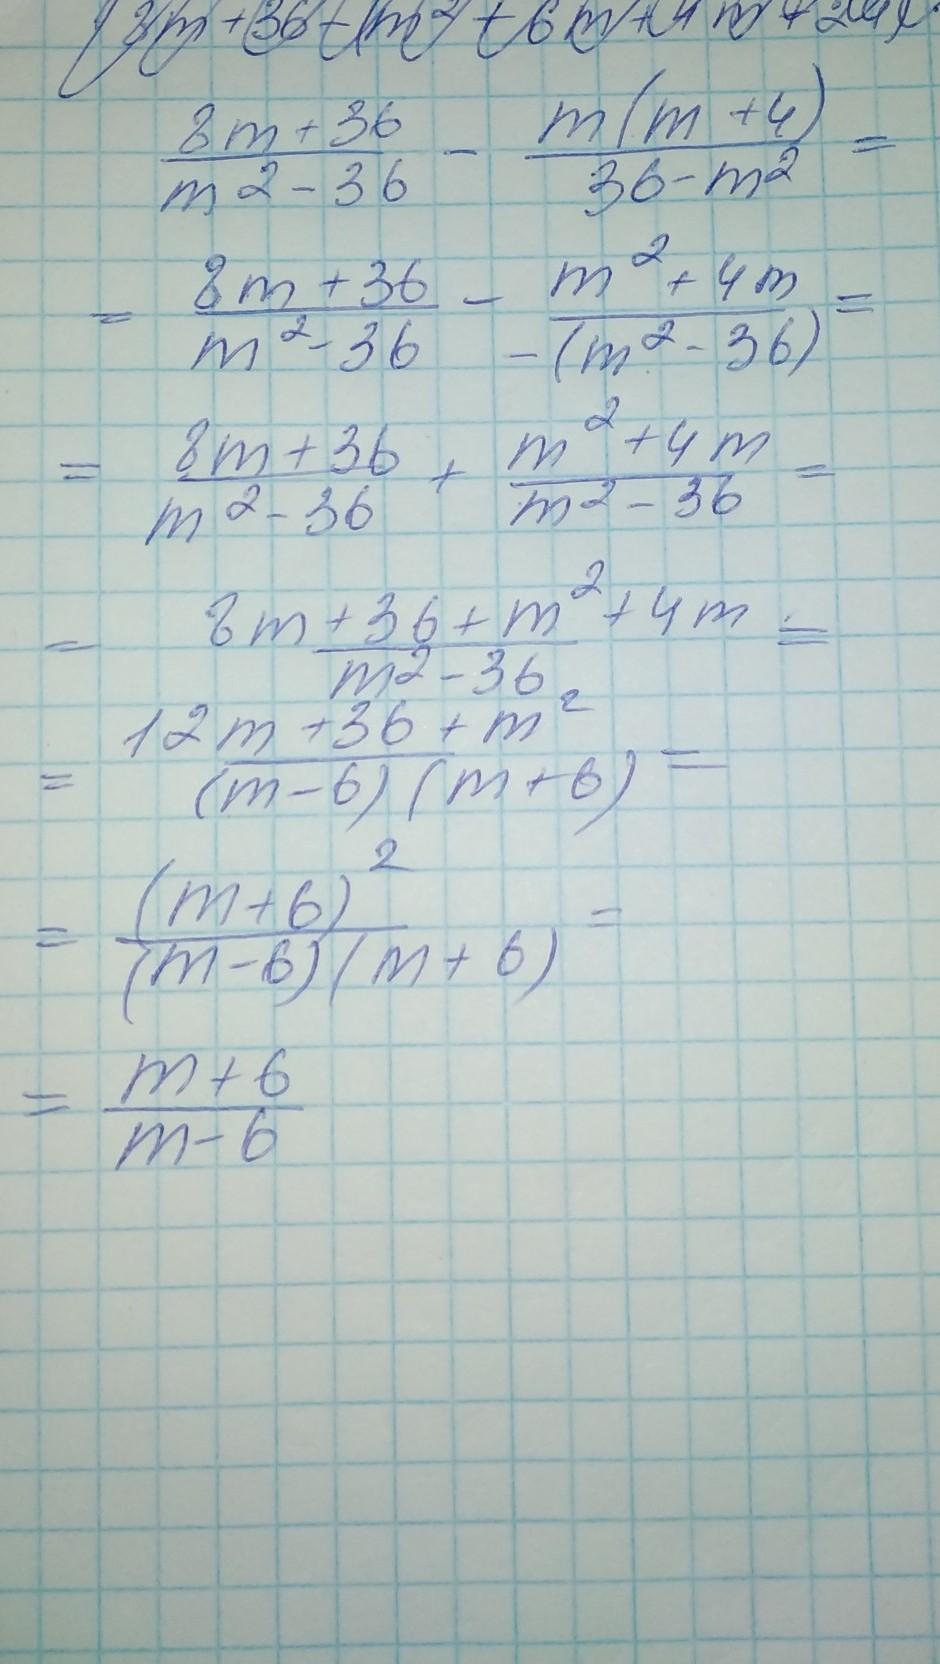 8m+36/m²-36 - m(m+4)/36-m² =
= 8m+36/m²-36 - m²+4m/-(m²-36) =
= 8m+36/m²-36 + m²+4m/m²-36 =
= 8m+36+m²+4m/m²-36 =
= 12m+36+m²/(m-6)(m+6) =
= (m+6)²/(m-6)(m+6) =
= m+6/m-6